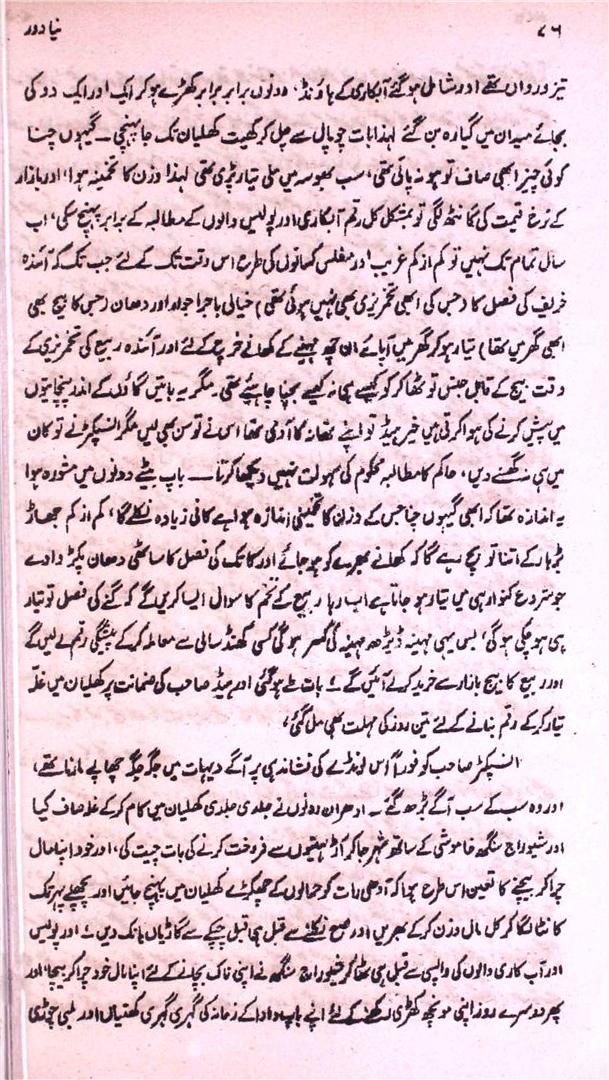 ۷۶
نیا دور
تیز رواں تھے اور شامل ہو گئے آبکاری کے ہاؤنڈ، دونوں برابر برابر کھڑے ہو کر ایک اور ایک دو کی
بجائے میدان میں گیارہ بن گئے لہذا بات چوپال سے چل کر کھیت کھلیان تک جا پہنچی ۔ گیہوں چنا
کوئی چیز ابھی صاف تو ہو نہ پائی تھی، سب بھوسہ میں ملی تیار پڑی تھی لہذا وزن کا تخمینہ ہوا، اور بازار
کے نرخ قیمت کی گانٹھ لگی تو بمشکل کل رقم آبکاری اور پولیس والوں کے مطالبہ کے برابر پہنچ سکی، اب
سال تمام تک نہیں تو کم از کم غریب اور مفلس کسانوں کی طرح اس وقت تک کے لئے جب تک کہ آئندہ
خریف کی فصل کا (جس کی ابھی تخمریزی بھی نہیں ہوئی تھی) خیالی باجرا جوار اور دھان (جس کا بیج بھی
ابھی گھر میں تھا) تیار ہو کر گھر میں آ جائے ان چھ مہینے کے کھانے خرچ کے لئے اور آئندہ ربیع کی تخمریزی کے
وقت بیج کے قابل جنس تو ٹھاکر کو کیسے ہی نہ کیسے بچنا چاہیئے تھی۔ مگر یہ باتیں گاؤں کے اندر پنچایتوں
میں پیش کرنے کی ہوا کرتی ہیں خیر ہیڈ تو اپنے تھانہ کا آدمی تھا اس نے تو سن بھی لیں مگر انسپکٹر نے تو کان
میں ہی نہ گھسنے دیں، حاکم کا مطالبہ محکوم کی سہولت نہیں دیکھا کرتا ــــ باپ بیٹے دونوں میں مشورہ ہوا
یہ اندازہ تھا کہ ابھی گیہوں چنا جس کے وزن کا تخمینی اندازہ ہوا ہے کافی زیادہ نکلے گا، کم از کم جھاڑ
بڑھار کے اتنا تو بچ رہے گا کہ کھانے بھرے کو ہو جائے اور کاتک کی فصل کا ساٹھی دھان پکڑوا دے
جو شروع کنوار ہی میں تیار ہو جاتا ہے اب رہا ربیع کے تخم کا سوال ایسا کریں گے کہ گنے کی فصل تو تیار
ہی ہو چکی ہو گی، بس یہی مہینہ ڈیڑھ مہینہ کی کسر ہو گی کسی کھنڈسالی سے معاملہ کر کے پیشگی رقم لے لیں گے
اور ربیع کا بیج بازار سے خرید کر لے آئیں گے۔ بات طے ہو گئی اور ہیڈ صاحب کی ضمانت پر کھلیان میں غلہ
تیار کر کے رقم بنانے کے لئے تین روز کی مہلت بھی مل گئی،
انسپکٹر صاحب کو فوراً اُس لونڈے کی نشاندہی پر آگے دیہات میں جگہ جگہ چھاپے مارنا تھے،
اور وہ سب کے سب آگے بڑھ گئے ۔ ادھر ان دونوں نے جلدی جلدی کھلیان میں کام کر کے غلہ صاف کیا
اور شیوراج سنگھ خاموشی کے ساتھ شہر جا کر آڑھتیوں سے فروخت کرنے کی بات چیت کی، اور خود اپنا مال
چرا کر بیچنے کا تعین اس طرح ہوا کہ آدھی رات کو حمالوں کے چھکڑے کھلیان میں پہنچ جائیں اور پچھلے پہر تک
کانٹا لگا کر کل مال وزن کر کے بھریں اور صبح نکلنے سے قبل ہی قبل چپکے سے گاڑیاں ہانک دیں۔ اور پولیس
اور آب کاری والوں کی واپسی سے قبل ہی ٹھاکر شیوراج سنگھ نے اپنی ناک بچانے کے لئے اپنا مال خود چرا کر بیچا، اور
پھر دوسرے روز اپنی مونچھ کھڑی رکھنے کے لئے اپنے باپ دادا کے زمانہ کی گہری گہری کھتیاں اور لمبی چوڑی